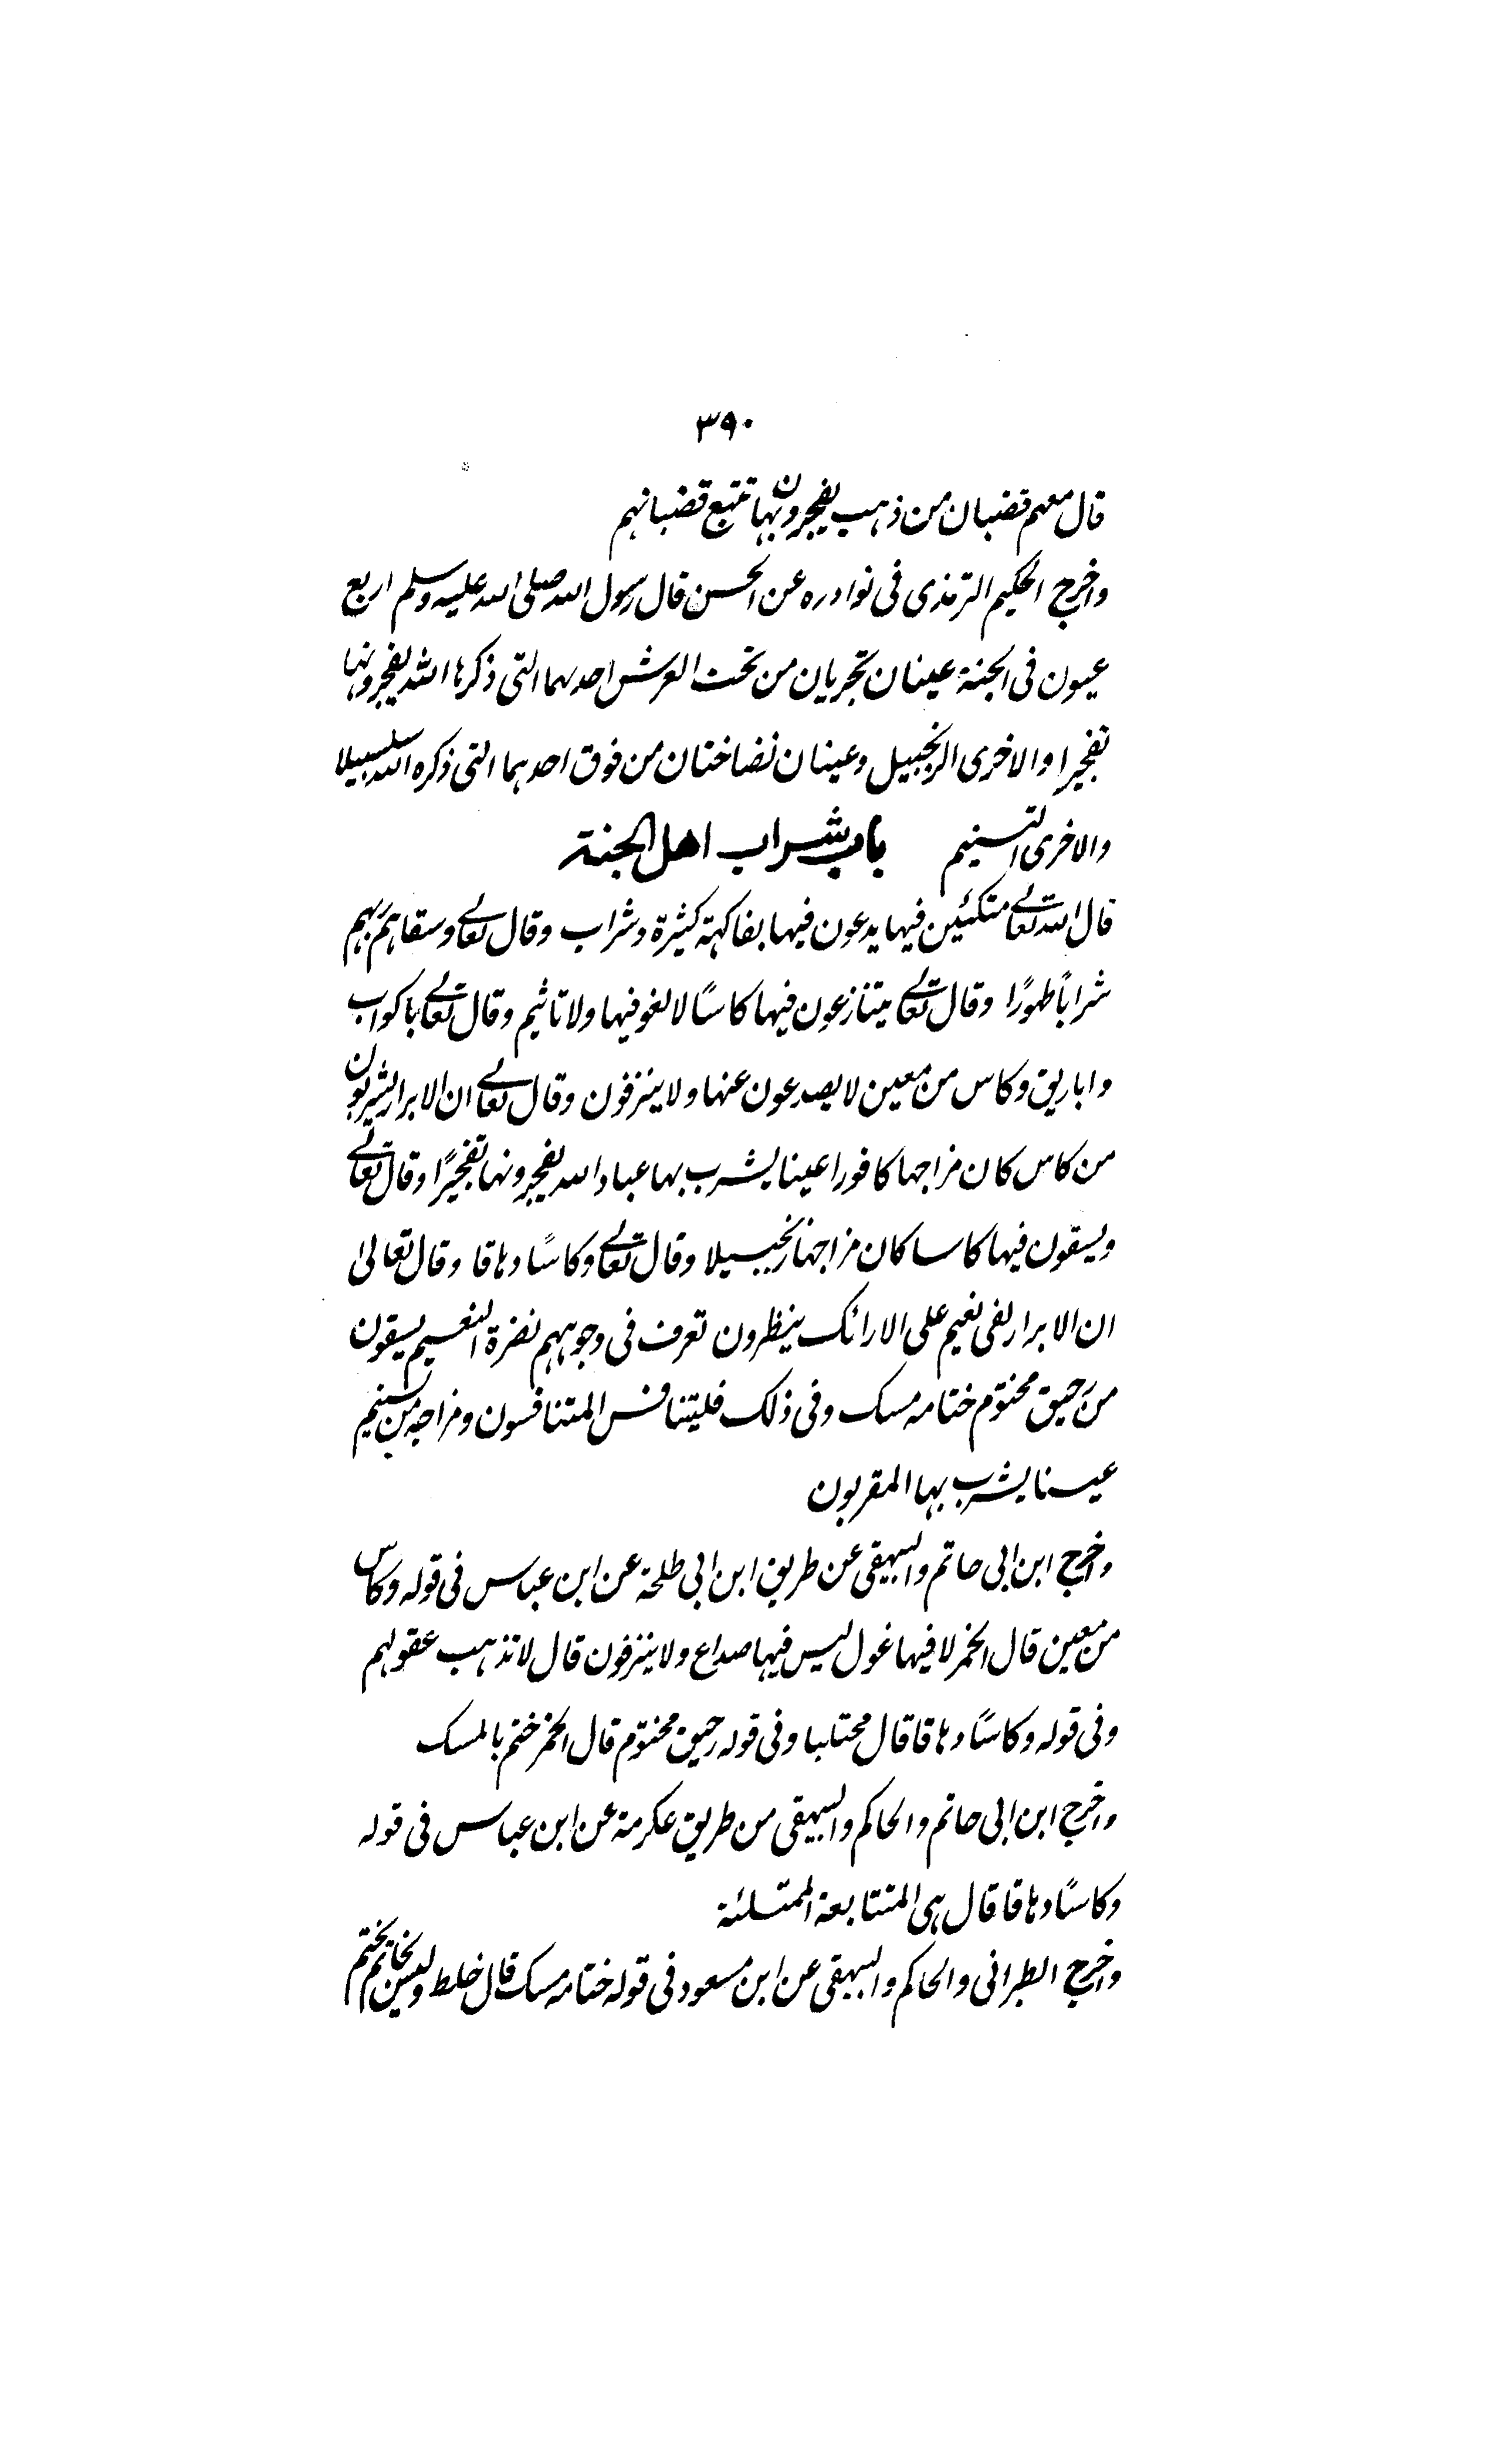 ٣٩٠
قال معهم قضبان من ذهب يفجرون بها تتبع قضبانهم
واخرج الحكيم الترمذى فى نوادره عن الحسن قال رسول الله صلى الله عليه وسلم اربع
عيون فى الجنة عينان تجريان من تحت العرش احدهما التى ذكرها الله يفجرونها
تفجيرا والاخرى الزنجبيل وعينان نضاختان من فوق احدهما التى ذكره الله سلسبيلا
والاخرى التسنيم باب شراب اهل الجنة
قال الله تعالے متكئين فيها يدعون فيها بفاكهة كثيرة وشراب وقال تعالے وسقاهم ربهم
شراباً طهورًا وقال تعالے يتنازعون فيها كاسًا لا لغو فيها ولا تاثيم وقال تعالے باكواب
واباريق وكاس من معين لا يصدعون عنها ولا ينزفون وقال تعالے ان الابرار يشربون
من كاس كان مزاجها كافورا عينا يشرب بها عباد الله يفجرونها تفجيرًا وقال تعالے
ويسقون فيها كاسا كان مزاجها زنجبيلا وقال تعالے وكاسًا دهاقا وقال تعالىٰ
ان الابرار لفى نعيم على الارائك ينظرون تعرف فى وجوههم نضرة النعيم يسقون
من رحيق مختوم ختامه مسك وفى ذلك فليتنافس المتنافسون ومزاجه من تسنيم
عينا يشرب بها المقربون
واخرج ابن ابى حاتم والبيهقى عن طريق ابن ابى طلحة عن ابن عباس فى قوله وكاس
من معين قال الخمر لا فيها غول ليس فيها صداع ولا ينزفون قال لا تذهب عقولهم
وفى قوله وكاسًا دهاقا قال محتلبا وفى قوله رحيق مختوم قال الخمر ختم بالمسك
واخرج ابن ابى حاتم والحاكم والبيهقى من طريق عكرمة عن ابن عباس فى قوله
وكاسًا دهاقا قال هى المتتابعة الممتلئة
واخرج الطبرانى والحاكم والبيهقى عن ابن مسعود فى قوله ختامه مسك قال خلط وليس بخاتم يختم